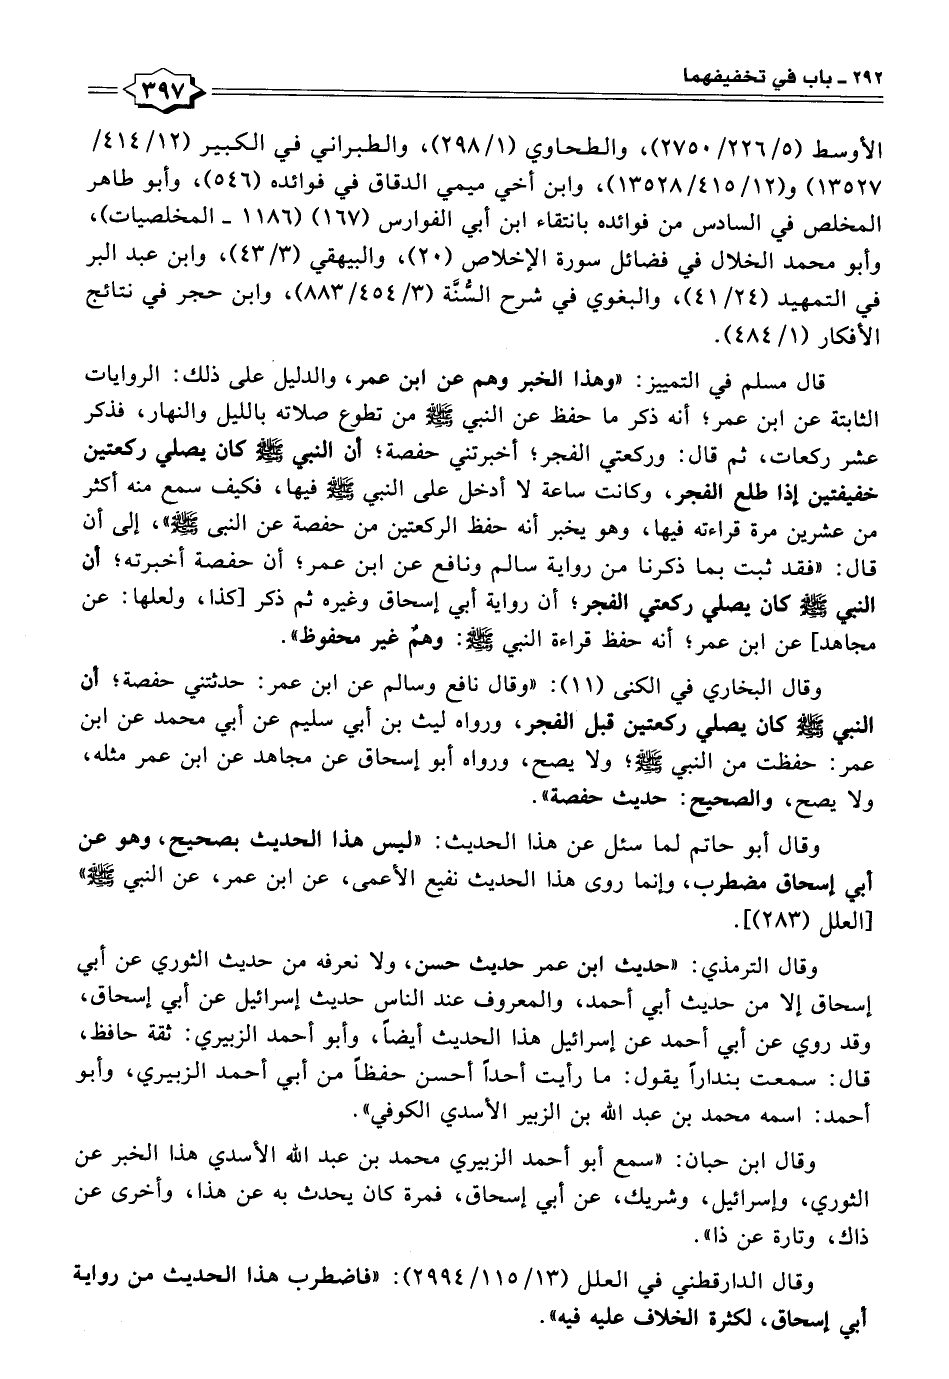 ٢٩٢ ـ باب في تخفيفهما
٣٩٧
الأوسط (٢٢٦/٥/ ٢٧٥٠)، والطحاوي (٢٩٨/١)، والطبراني في الكبير (٤١٤/١٢/
١٣٥٢٧) و(٤١٥/١٢/ ١٣٥٢٨)، وابن أخي ميمي الدقاق في فوائده (٥٤٦)، وأبو طاهر
المخلص في السادس من فوائده بانتقاء ابن أبي الفوارس (١٦٧) (١١٨٦ ـ المخلصيات)،
وأبو محمد الخلال في فضائل سورة الإخلاص (٢٠)، والبيهقي (٤٣/٣)، وابن عبد البر
في التمهيد (٤١/٢٤)، والبغوي في شرح السُّنَّة (٤٥٤/٣/ ٨٨٣)، وابن حجر في نتائج
الأفكار (٤٨٤/١).
قال مسلم في التمييز: «وهذا الخبر وهم عن ابن عمر، والدليل على ذلك: الروايات
الثابتة عن ابن عمر؛ أنه ذكر ما حفظ عن النبي ﷺ من تطوع صلاته بالليل والنهار، فذكر
عشر ركعات، ثم قال: وركعتي الفجر؛ أخبرتني حفصة؛ أن النبي ﷺ كان يصلي ركعتين
خفيفتين إذا طلع الفجر، وكانت ساعة لا أدخل على النبي ﷺ فيها، فكيف سمع منه أكثر
من عشرين مرة قراءته فيها، وهو يخبر أنه حفظ الركعتين من حفصة عن النبى ﷺ»، إلى أن
قال: «فقد ثبت بما ذكرنا من رواية سالم ونافع عن ابن عمر؛ أن حفصة أخبرته؛ أن
النبي ﷺ كان يصلي ركعتي الفجر؛ أن رواية أبي إسحاق وغيره ثم ذكر [كذا، ولعلها: عن
مجاهد] عن ابن عمر؛ أنه حفظ قراءة النبي ﷺ: وهمٌ غير محفوظ».
وقال البخاري في الكنى (١١): «وقال نافع وسالم عن ابن عمر: حدثتني حفصة؛ أن
النبي ﷺ كان يصلي ركعتين قبل الفجر، ورواه ليث بن أبي سليم عن أبي محمد عن ابن
عمر: حفظت من النبي ﷺ؛ ولا يصح، ورواه أبو إسحاق عن مجاهد عن ابن عمر مثله،
ولا يصح، والصحيح: حديث حفصة».
وقال أبو حاتم لما سئل عن هذا الحديث: «ليس هذا الحديث بصحيح، وهو عن
أبي إسحاق مضطرب، وإنما روى هذا الحديث نفيع الأعمى، عن ابن عمر، عن النبي ﷺ»
[العلل (٢٨٣)].
وقال الترمذي: «حديث ابن عمر حديث حسن، ولا نعرفه من حديث الثوري عن أبي
إسحاق إلا من حديث أبي أحمد، والمعروف عند الناس حديث إسرائيل عن أبي إسحاق،
وقد روي عن أبي أحمد عن إسرائيل هذا الحديث أيضاً، وأبو أحمد الزبيري: ثقة حافظ،
قال: سمعت بنداراً يقول: ما رأيت أحداً أحسن حفظاً من أبي أحمد الزبيري، وأبو
أحمد: اسمه محمد بن عبد الله بن الزبير الأسدي الكوفي».
وقال ابن حبان: «سمع أبو أحمد الزبيري محمد بن عبد الله الأسدي هذا الخبر عن
الثوري، وإسرائيل، وشريك، عن أبي إسحاق، فمرة كان يحدث به عن هذا، وأخرى عن
ذاك، وتارة عن ذا».
وقال الدارقطني في العلل (١١٥/١٣/ ٢٩٩٤): «فاضطرب هذا الحديث من رواية
أبي إسحاق، لكثرة الخلاف عليه فيه».